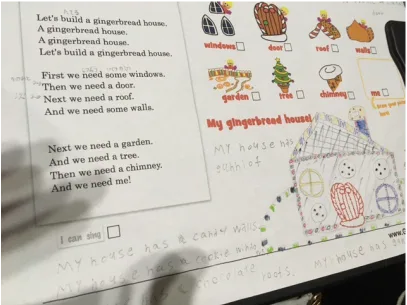 Let's build a gingerbread house.
A gingerbread house.
A gingerbread house.
Let's build a gingerbread house.
First we need some windows.
Then we need a door.
Next we need a roof.
And we need some walls.
Next we need a garden.
And we need a tree.
Then we need a chimney.
And we need me!
I can sing
windows
door
roof
walls
garden
tree
chimney
me
My gingerbread house!
My house has
My house has a candy walls
My house has a cookie
chocolate roofs. My house has